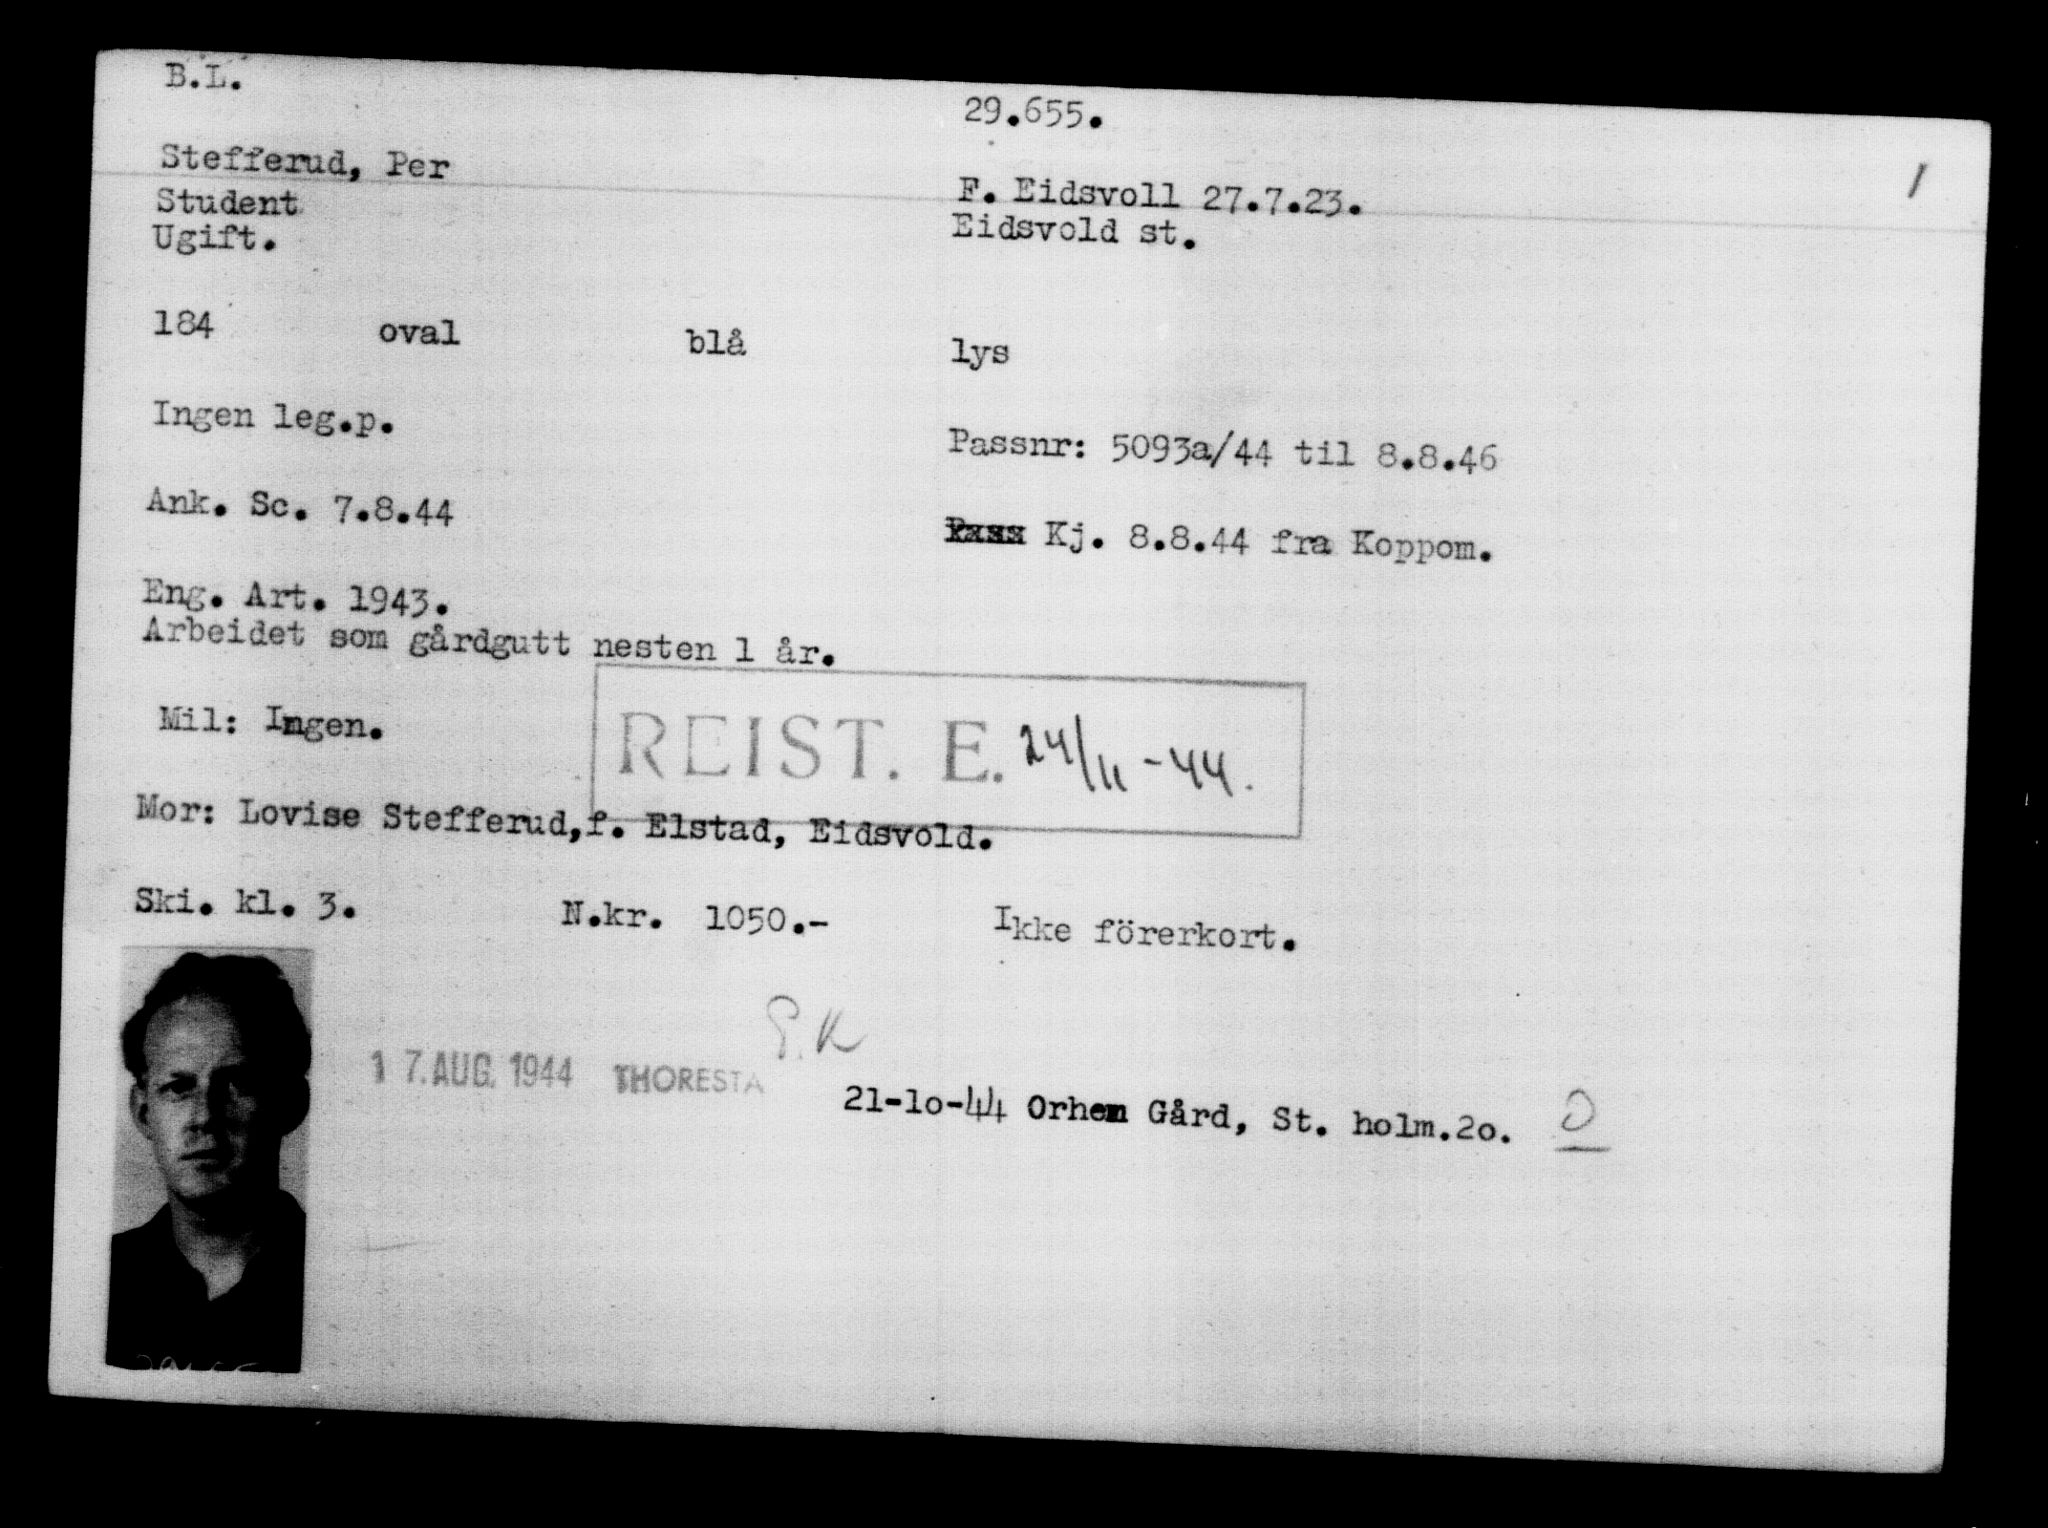 B.L.
29.655.
1
Stefferud, Per
F. Eidsvoll 27.7.23.
Student
Eidsvold st.
Ugift.
184 oval blå lys
Ingen leg.p.
Passnr: 5093a/44 til 8.8.46
Ank. Sc. 7.8.44
Pass Kj. 8.8.44 fra Koppom.
Eng. Art. 1943.
Arbeidet som gårdgutt nesten 1 år.
Mil: Ingen.
REIST. E. 24/11-44.
Mor: Lovise Stefferud,f. Elstad, Eidsvold.
Ski. kl. 3. N.kr. 1050.- Ikke förerkort.
17. AUG. 1944 THORESTA
21-10-44 Orhem Gård, St. holm.2o. O